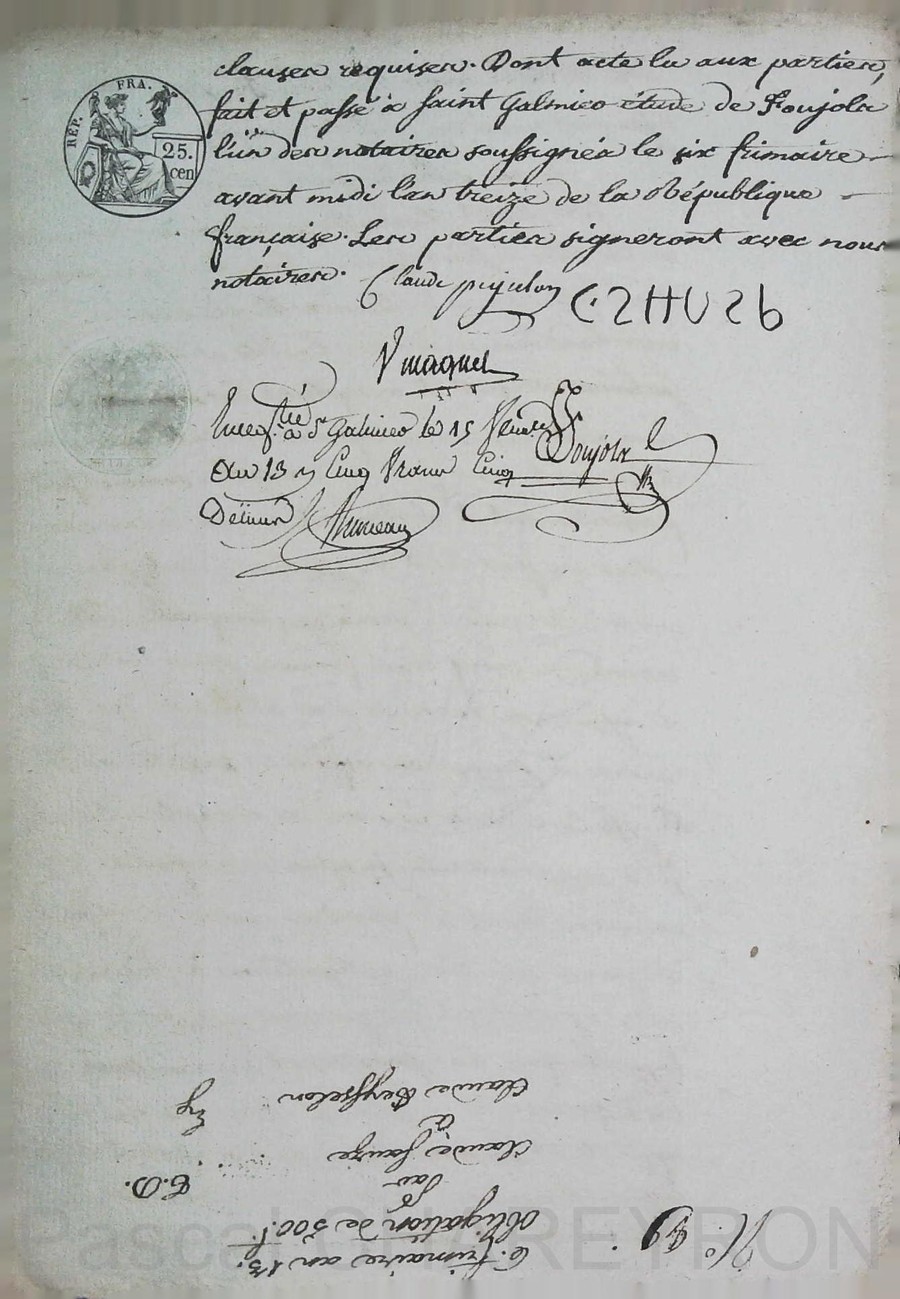 RÉP. FRA.
25.
cen
clauses requises. Dont acte lu aux parties,
fait et passé à Saint Galmier étude de Foujols
l'un des notaires soussignés le six frimaire
avant midi l'an treize de la République
française. Les parties signeront avec nous
notaires.
Claude
à St Galmier le 15
an 13 Cinq francs Cinq
Foujols
6. frimaire an 13.
Obligation de 500f
par
Claude
à
Claude Peysselon
N.º
Pascal CHAREYRON